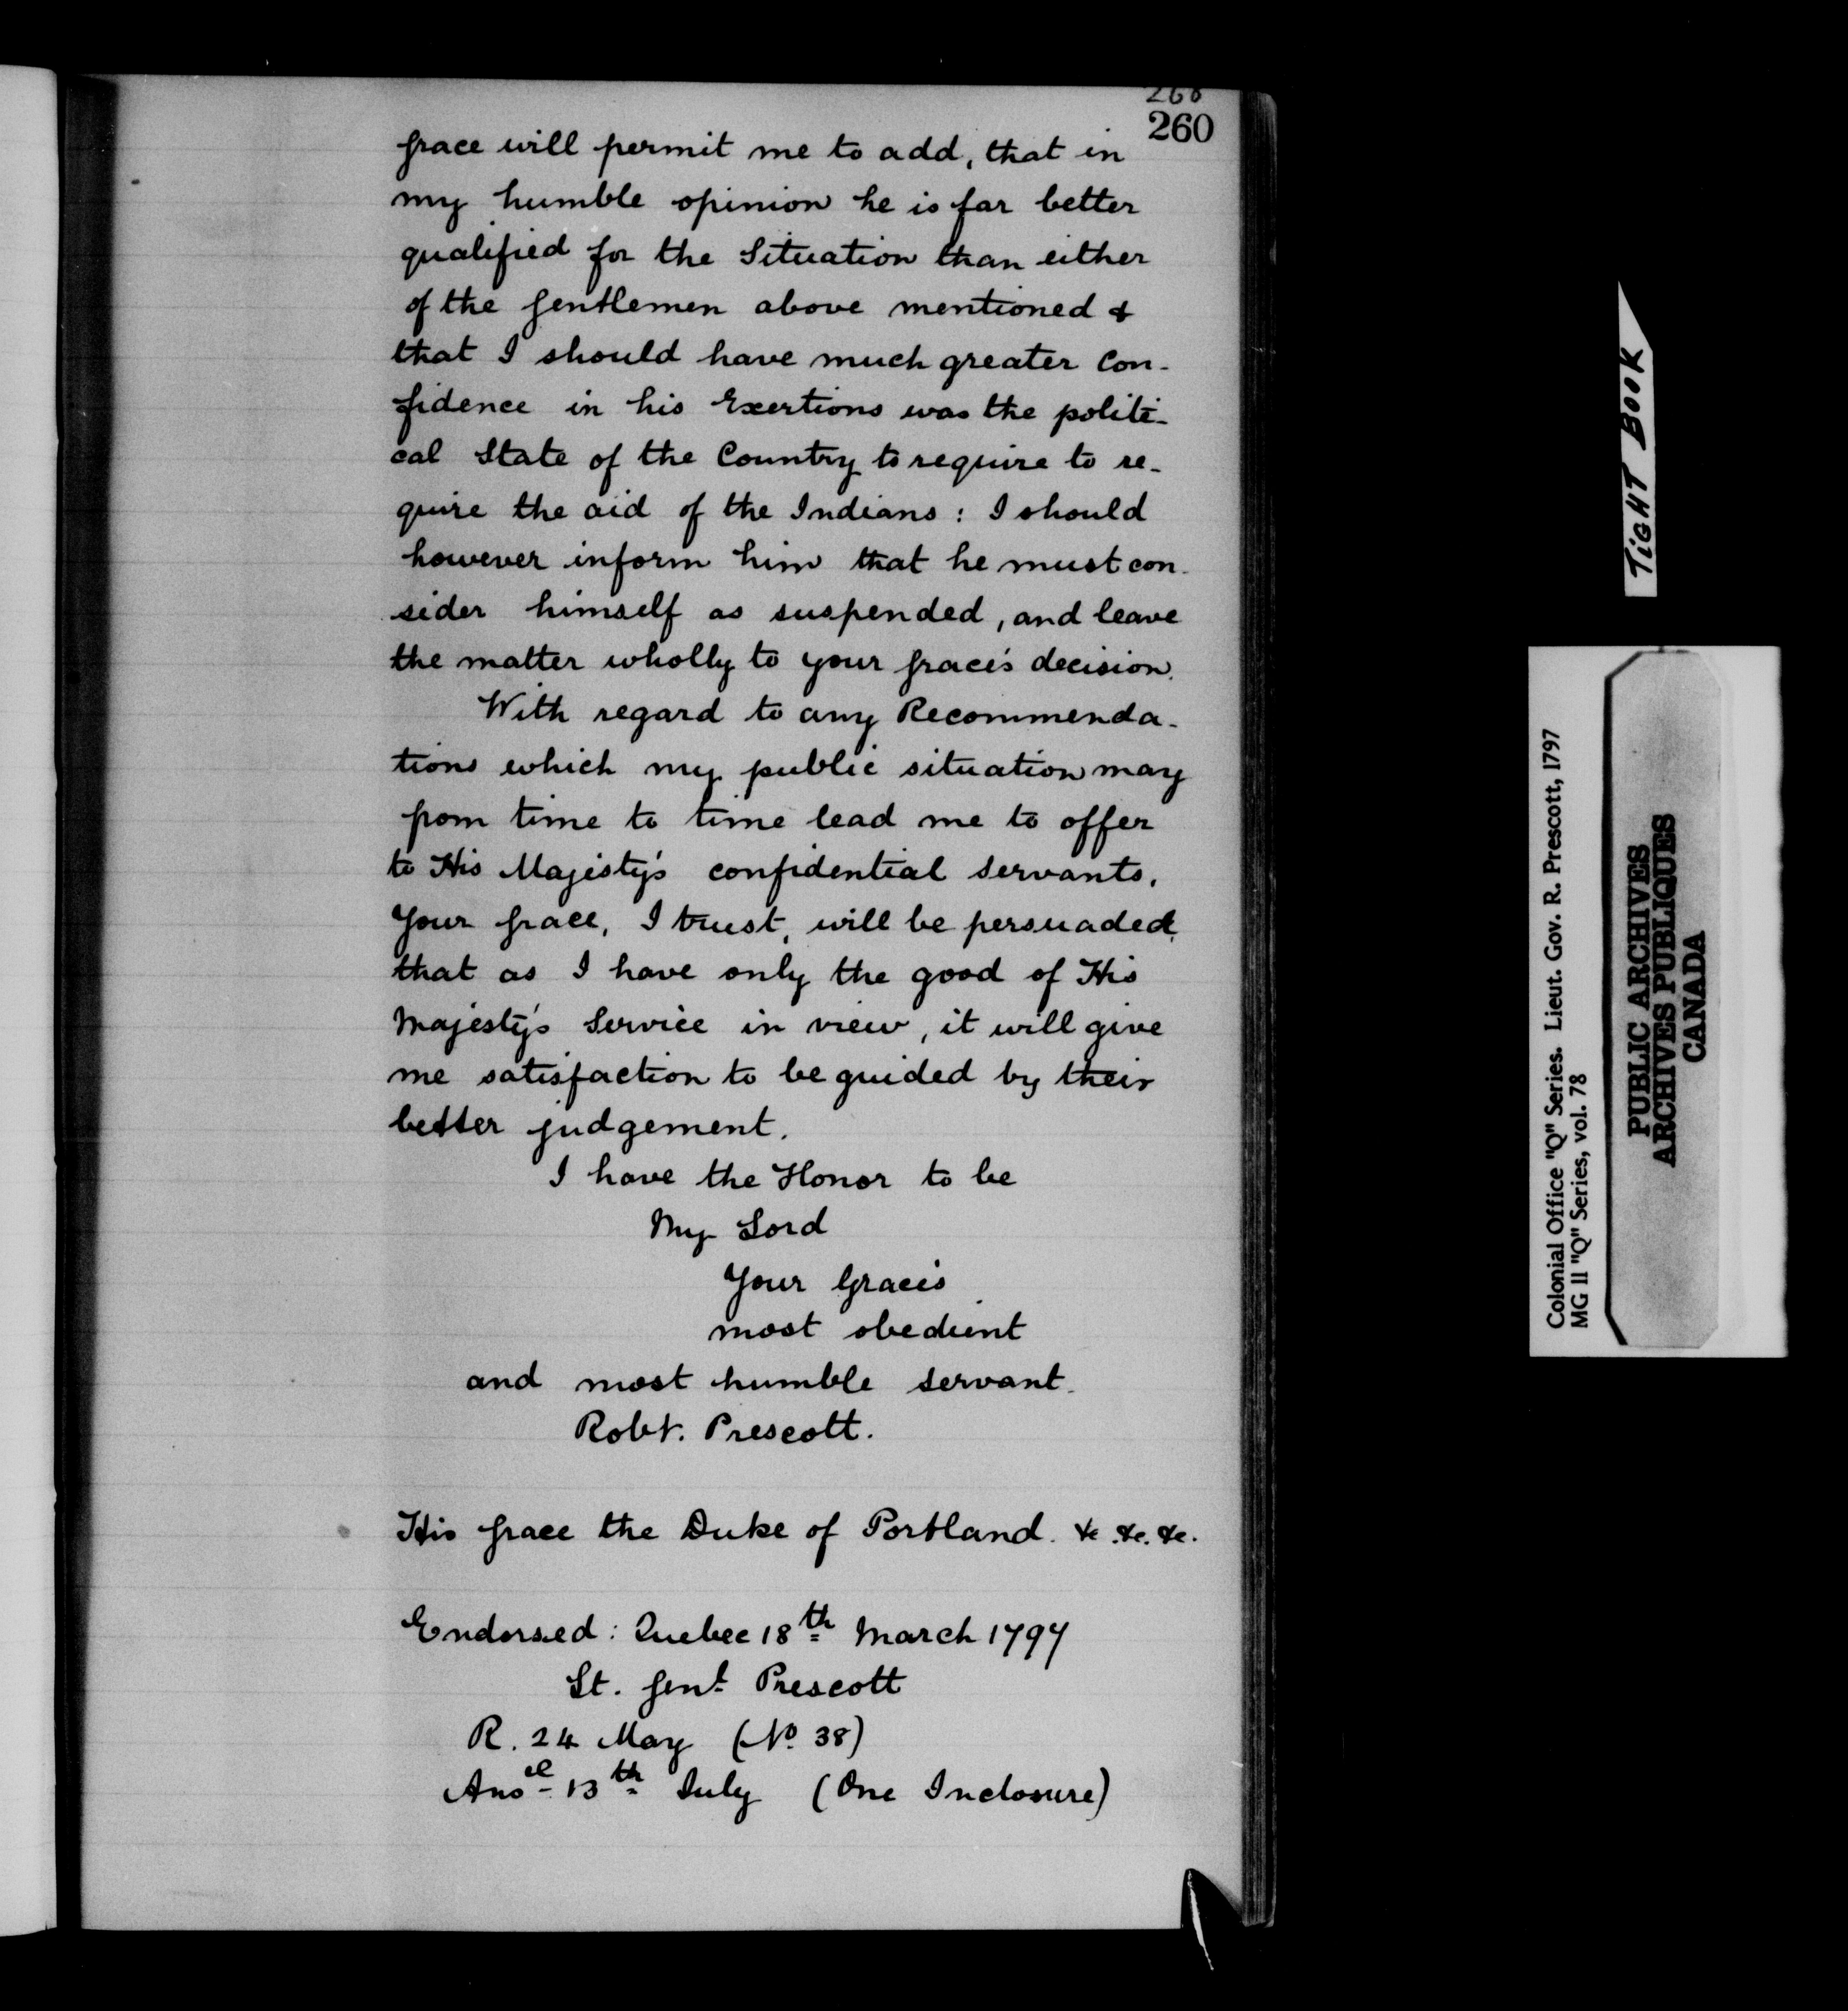 260
260
Grace will permit me to add, that in
my humble opinion he is far better
qualified for the Situation than either
of the Gentlemen above mentioned &
that I should have much greater Con-
fidence in his Exertions was the politi-
cal State of the Country to require to re-
quire the aid of the Indians : I should
however inform him that he must con-
sider himself as suspended, and leave
the matter wholly to your Grace's decision.
With regard to any Recommenda-
tions which my public situation may
from time to time lead me to offer
to His Majesty's confidential Servants,
Your Grace, I trust, will be persuaded,
that as I have only the good of His
Majesty's Service in view, it will give
me satisfaction to be guided by their
better judgement.
I have the Honor to be
My Lord
Your Grace's
most obedient
and most humble servant.
Robt. Prescott.
His Grace the Duke of Portland. &c. &c. &c.
Endorsed : Quebec 18th March 1797
Lt. Genl Prescott
R. 24 May (No. 38)
Ansd 13th July (One Inclosure)
TIGHT BOOK
Colonial Office "Q" Series. Lieut. Gov. R. Prescott, 1797
MG 11 "Q" Series, vol. 78
PUBLIC ARCHIVES
ARCHIVES PUBLIQUES
CANADA